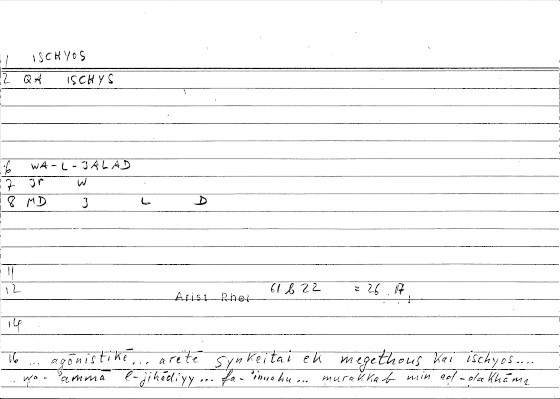 1 ISCHYOS
2 QH ISCHYS
6 WA-L-JALAD
7 JP W
8 MD J L D
11
12 Arist Rhet 61 b 22 = 26 17
14
16 ... agōnistikē... aretē synkeitai ek megethous kai ischyos....
wa-'ammā l-jihādiyy... fa-'innahu... murakkab min aḍ-ḍakhāma